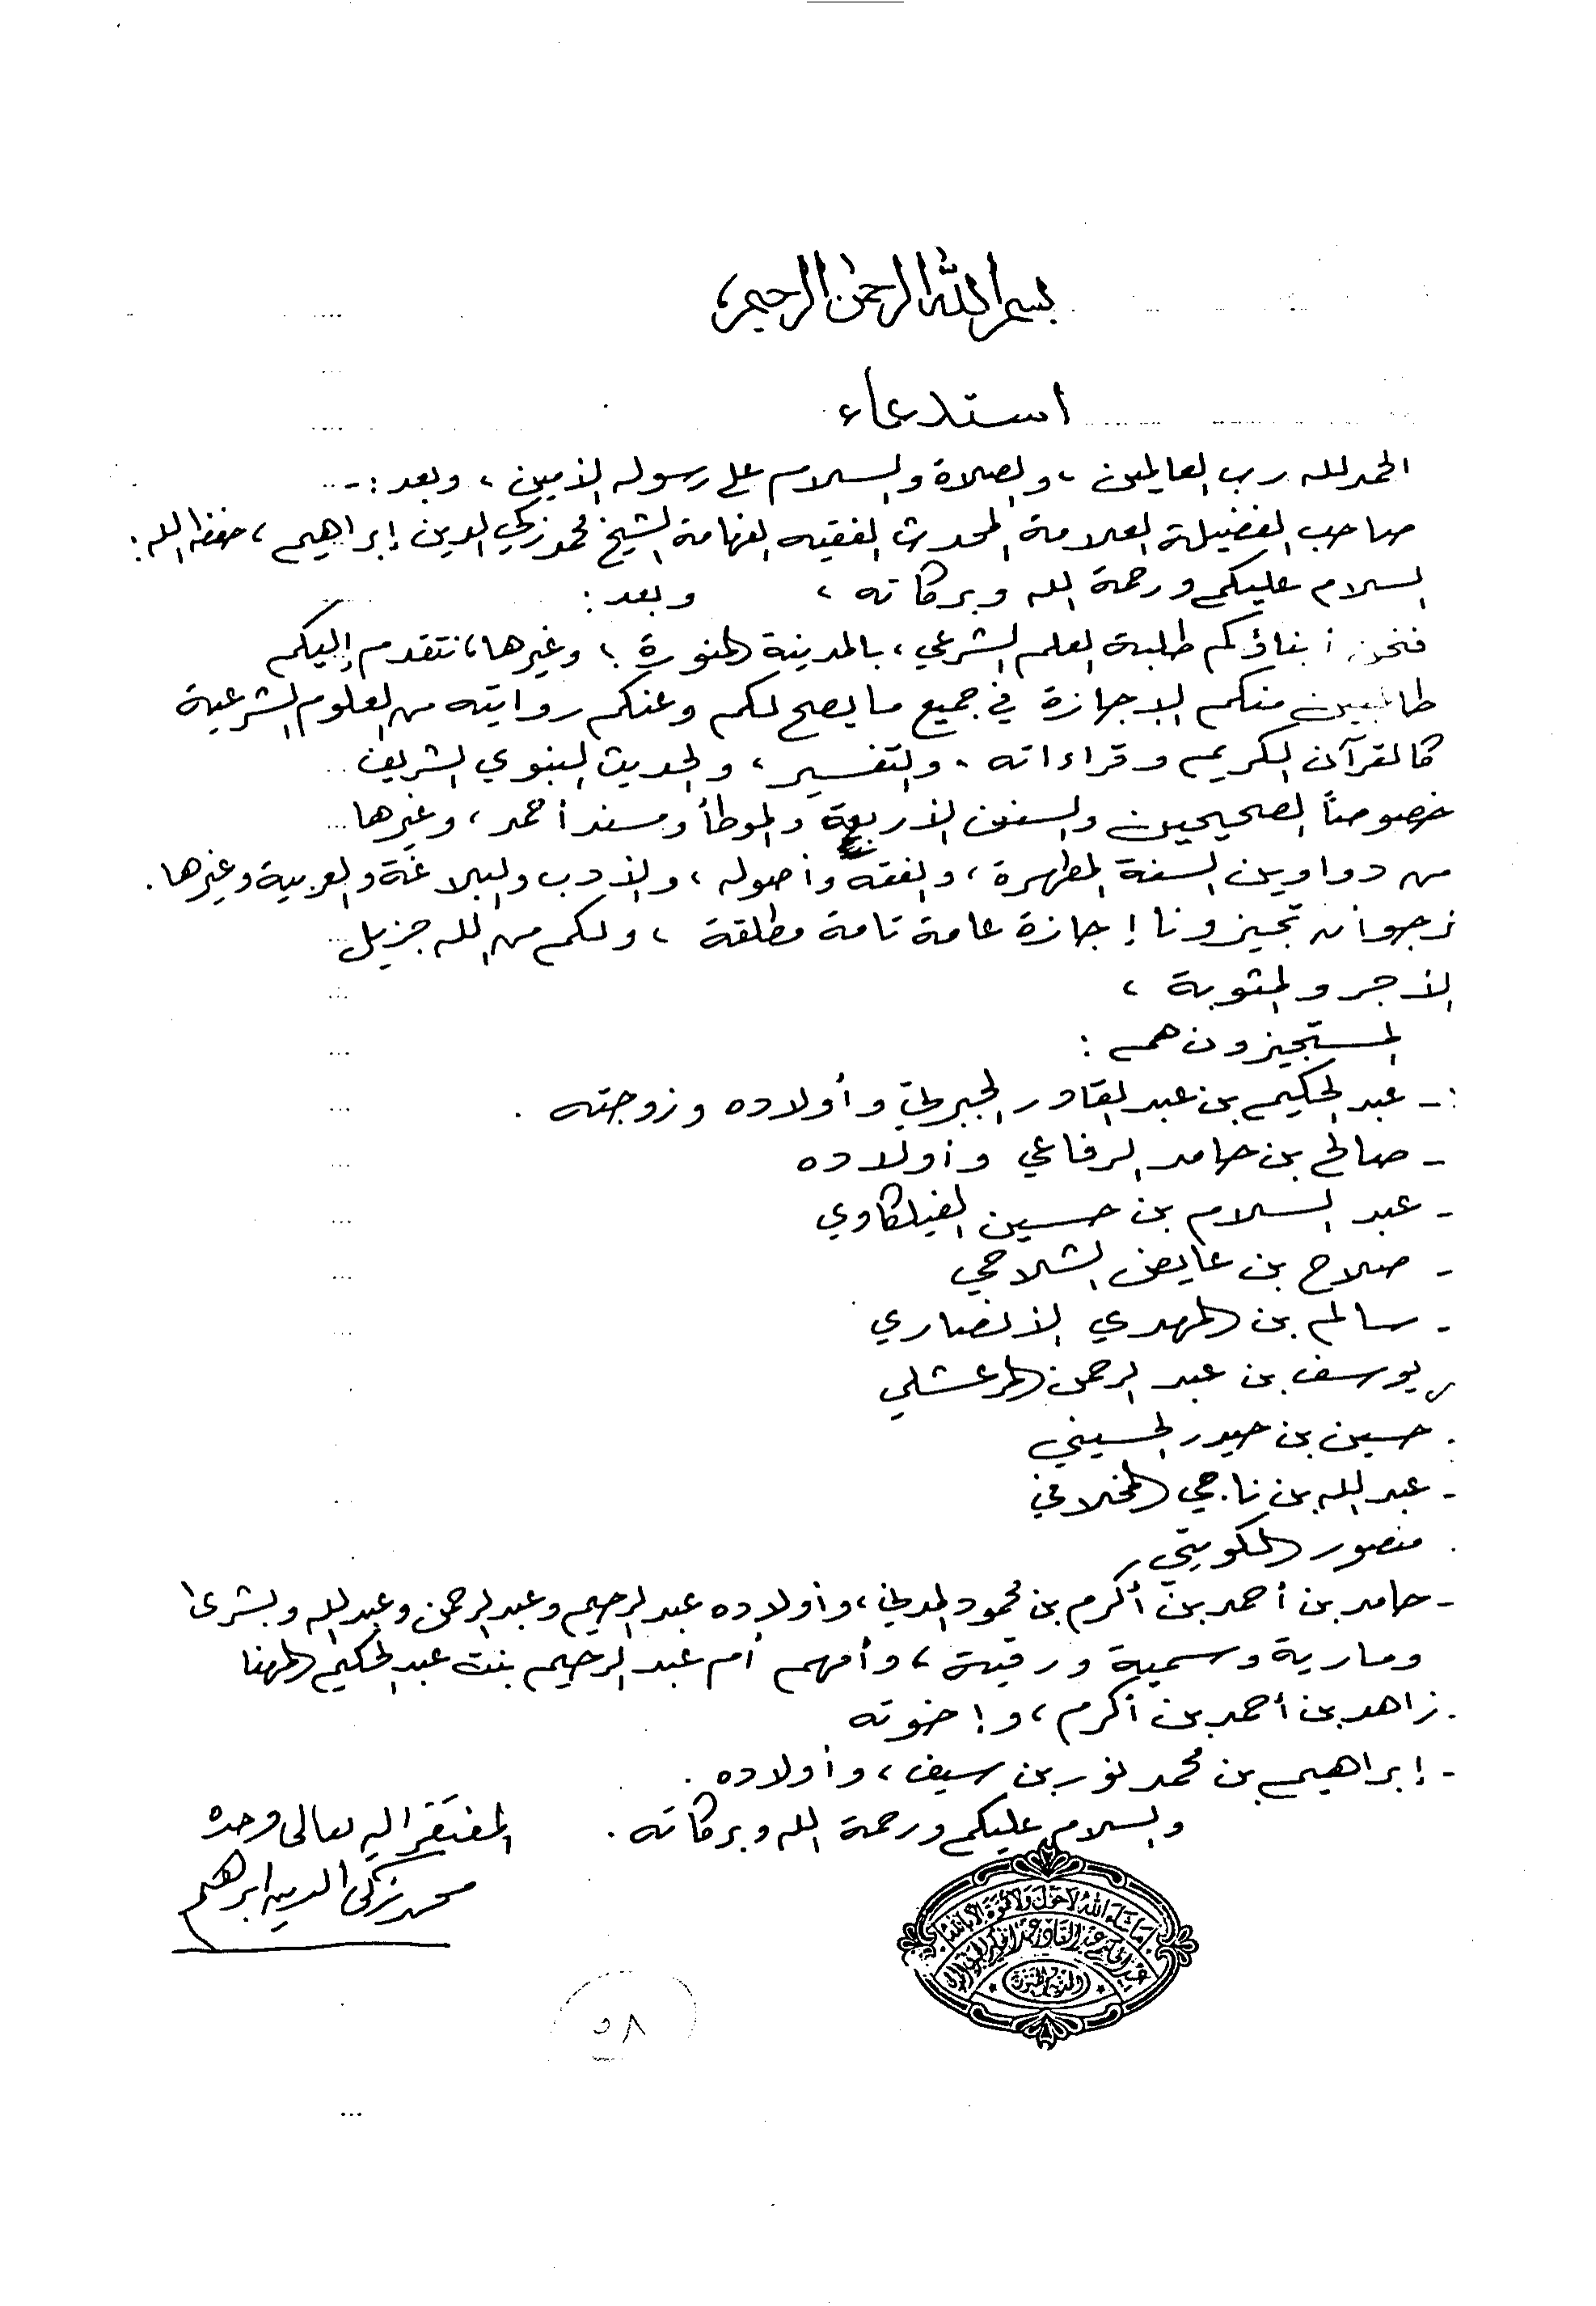 بسم الله الرحمن الرحيم
استدعاء
الحمد لله رب العالمين ، والصلاة والسلام على رسوله الأمين ، وبعد :-
صاحب الفضيلة العلامة المحدث الفقيه الفهامة الشيخ محمد زكي الدين إبراهيم ، حفظه الله :
السلام عليكم ورحمة الله وبركاته ، وبعد :
فنحن أبناؤكم طلبة العلم الشرعي ، بالمدينة المنورة ، وغيرها ، نتقدم إليكم
طالبين منكم الإجازة في جميع ما يصح لكم وعنكم روايته من العلوم الشرعية
كالقرآن الكريم وقراءاته ، والتفسير ، والحديث النبوي الشريف
خصوصاً الصحيحين والسنن الأربعة والموطأ ومسند أحمد ، وغيرها
من دواوين السنة المطهرة ، والفقه وأصوله ، والأدب والبلاغة والعربية وغيرها .
نرجو أن تجيزونا إجازة عامة تامة مطلقة ، ولكم من الله جزيل
الأجر والمثوبة ،
المستجيزون هم :
- عبد الحكيم بن عبد القادر الجبرتي وأولاده وزوجته .
- صالح بن حامد الرفاعي وأولاده
- عبد السلام بن حسين الفيلكاوي
- صلاح بن عايض الشلاحي
- سالم بن المهدي الأنصاري
- يوسف بن عبد الرحمن المرعشلي
- حسين بن حيدر الحسيني
- عبد الله بن ناجي المخلافي
- منصور الكويتي
- حامد بن أحمد بن أكرم بن محمود المدني ، وأولاده عبد الرحيم وعبد الرحمن وعبد الله وبشرى
ومارية وسمية ورقية ، وأمهم أم عبد الرحيم بنت عبد الحكيم المهنا
- زاهد بن أحمد بن أكرم ، وإخوته
- إبراهيم بن محمد نور بن سيف ، وأولاده .
والسلام عليكم ورحمة الله وبركاته .
المفتقر إليه تعالى وحده
محمد زكي الدين إبراهيم
ما شاء الله لا حول ولا قوة إلا بالله
٥٨